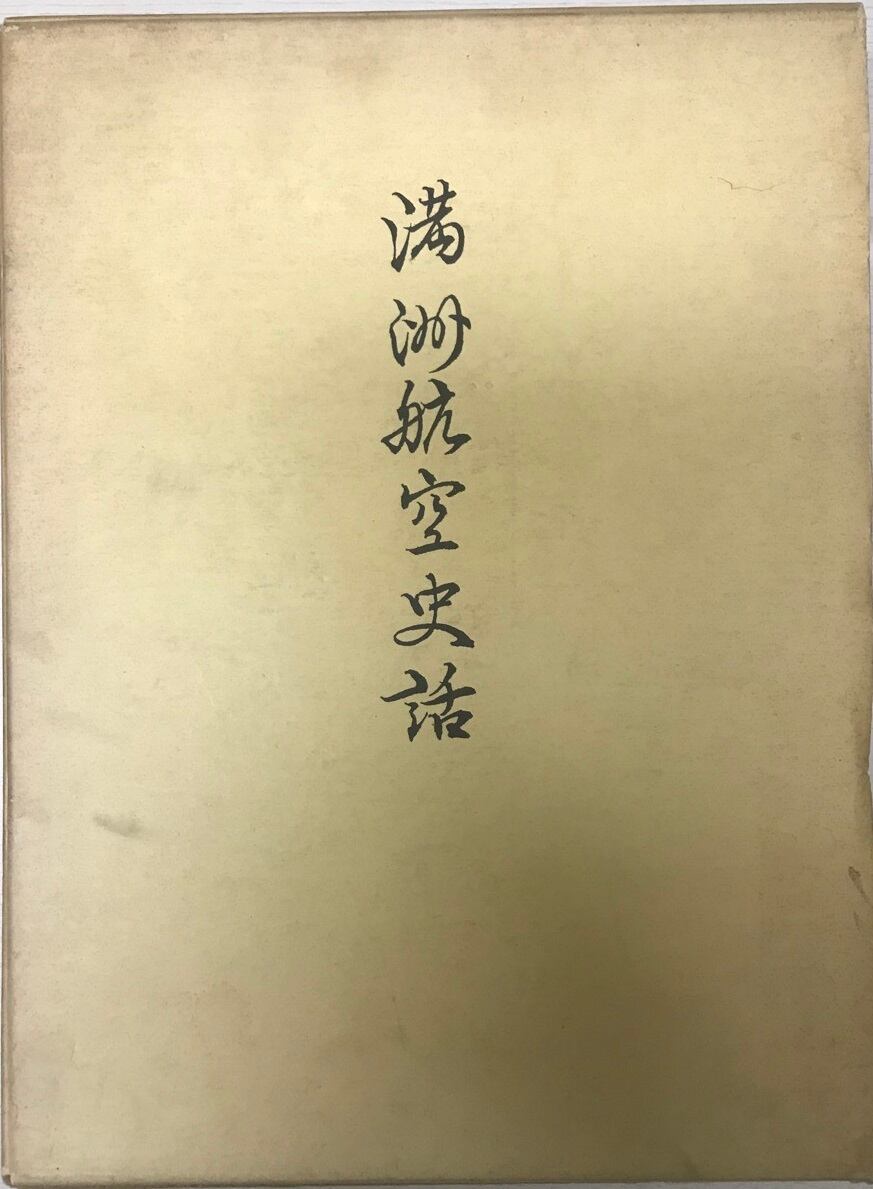 満洲航空史話